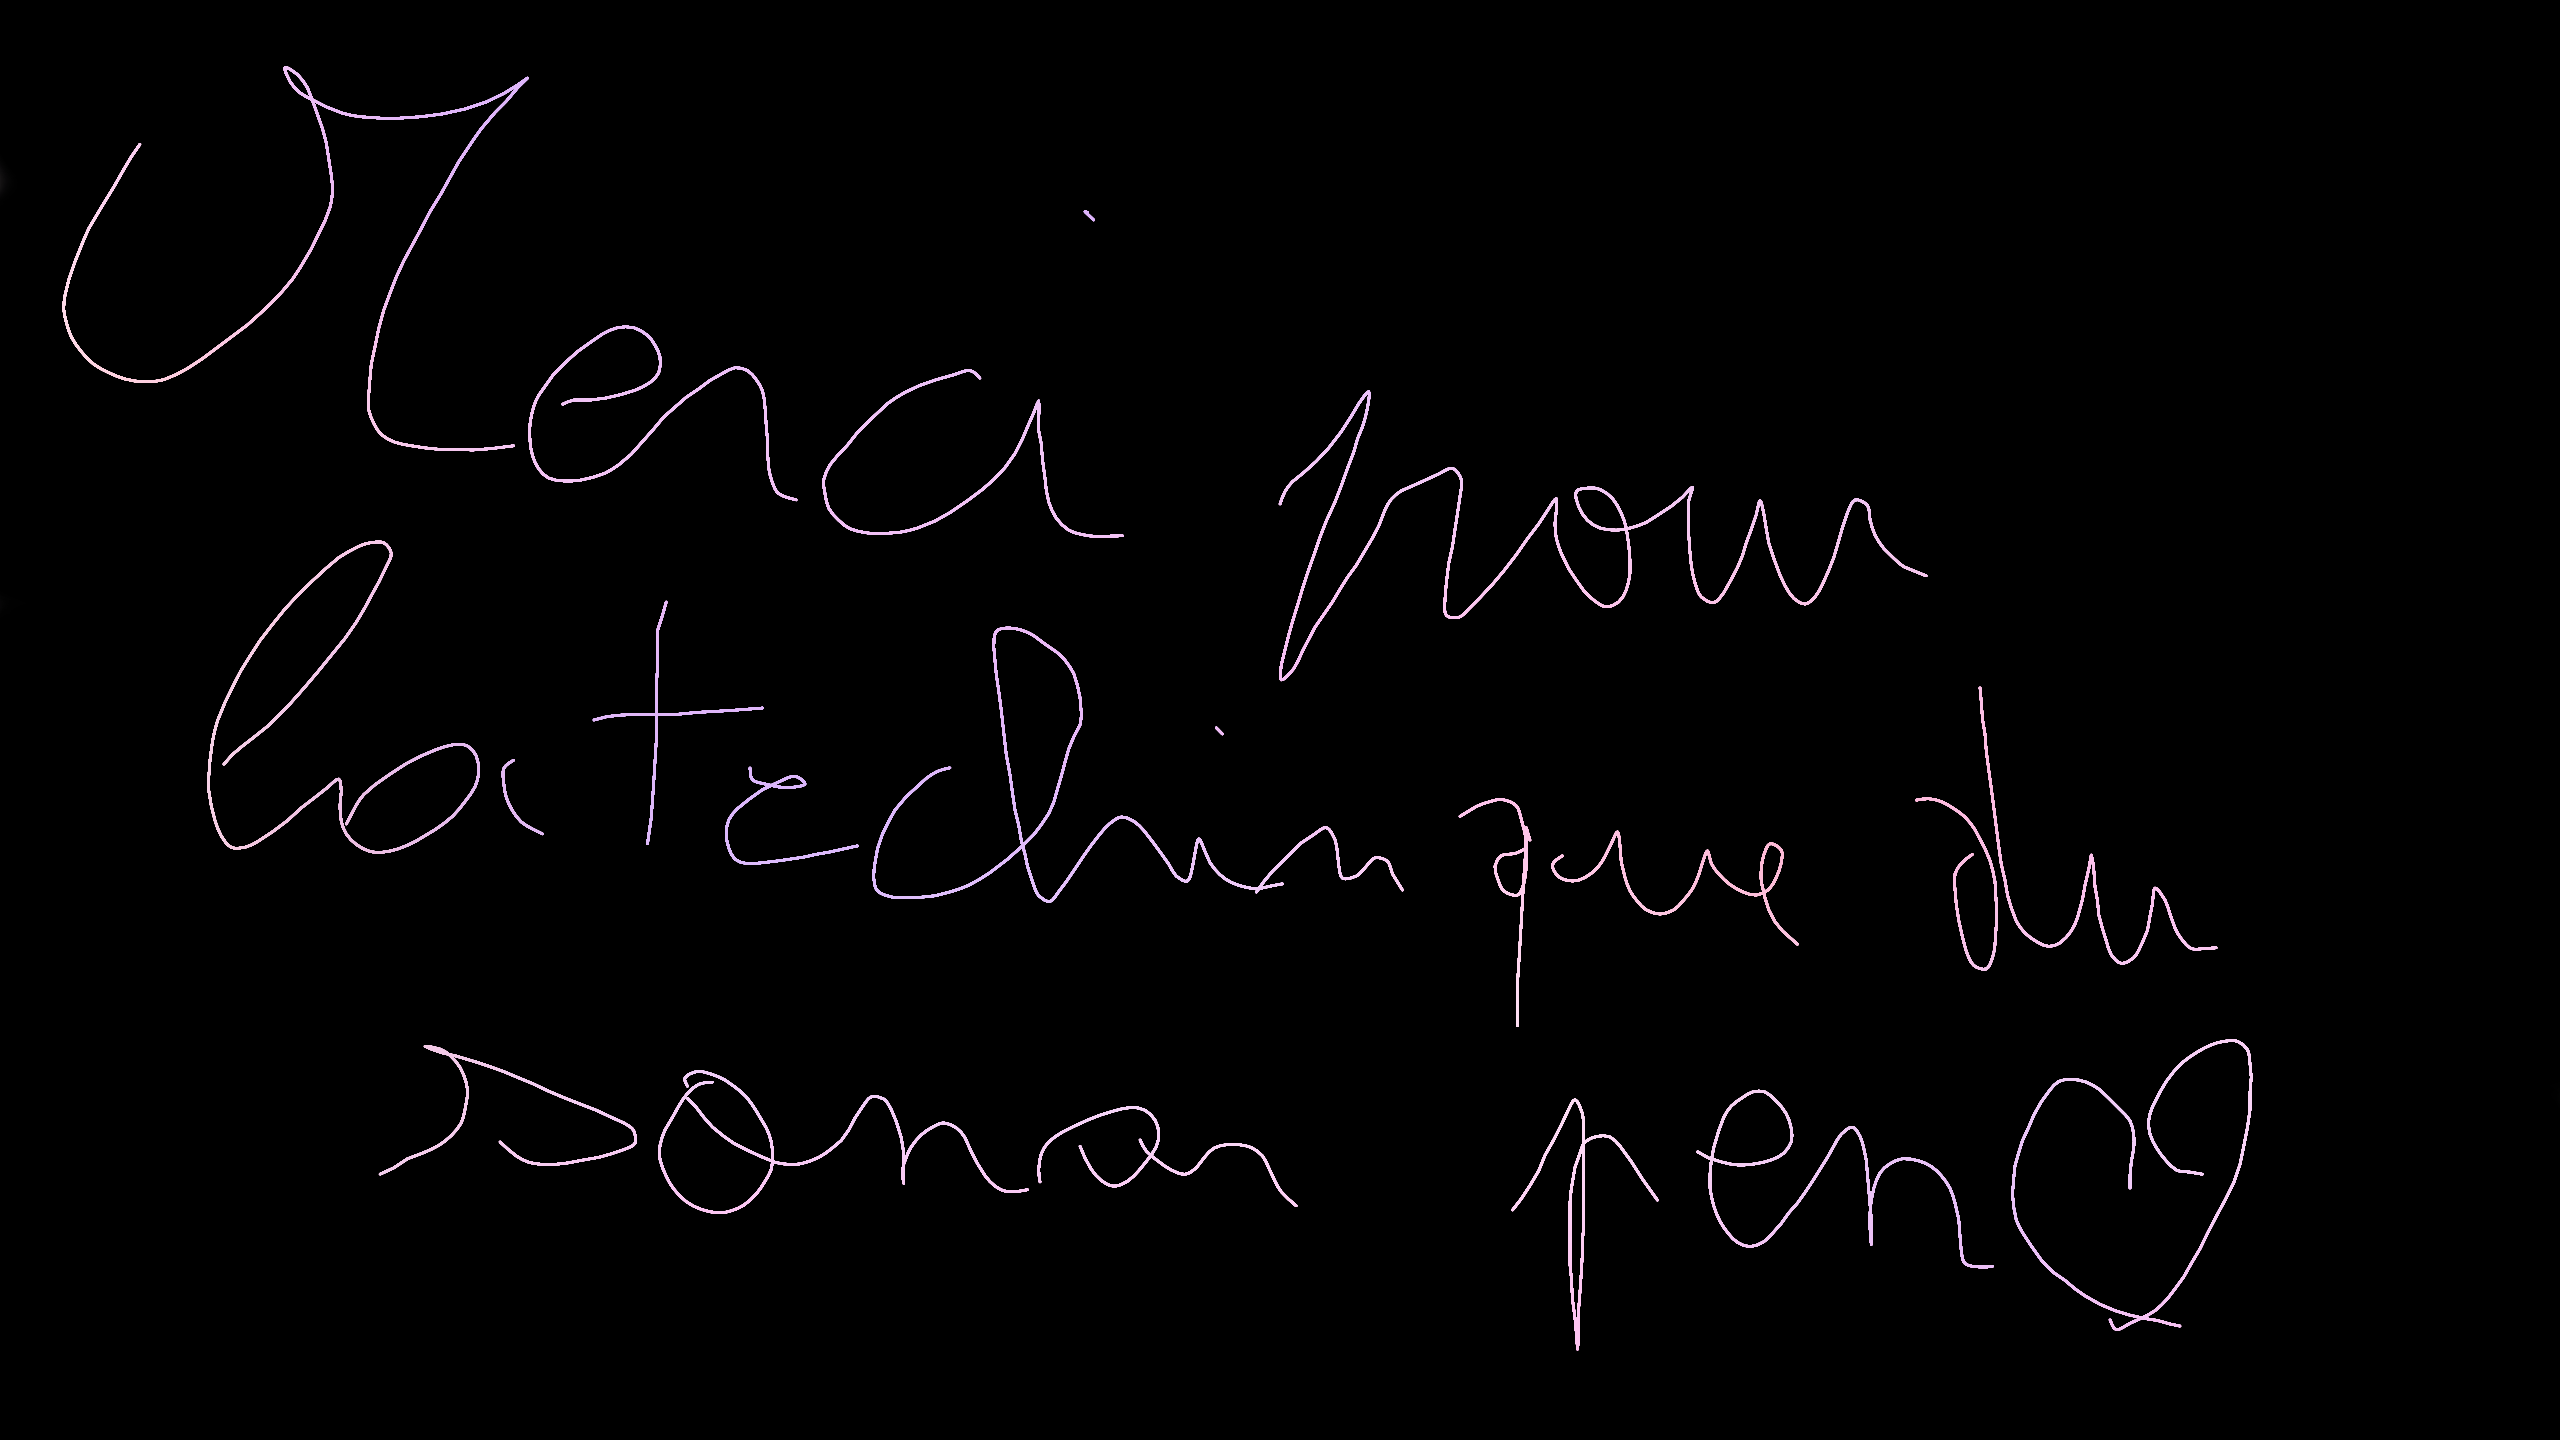 Merci pour
la technique du
sonar pen